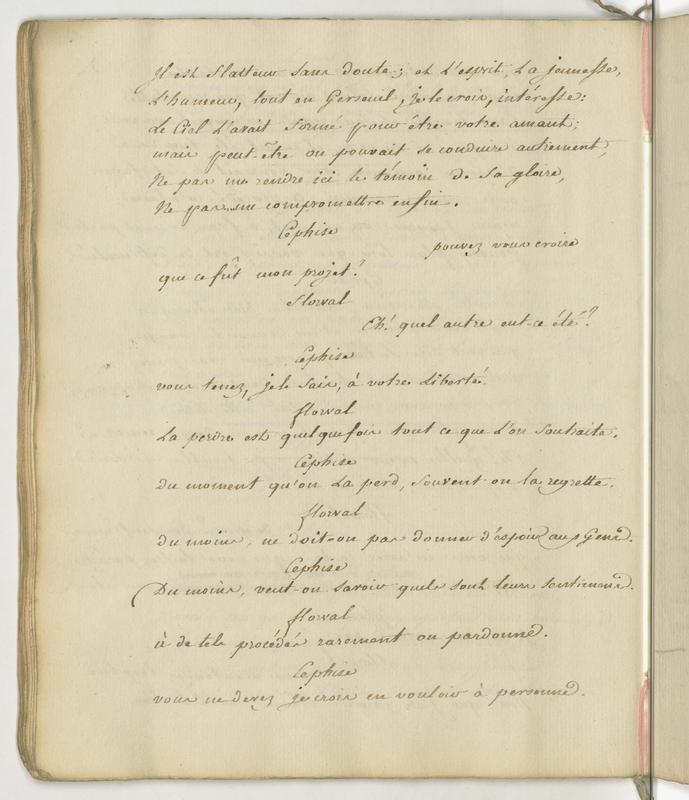 Il est flatteur sans doute; et l'esprit, la jeunesse,
L'humeur, tout en Gerseuil, je le crois, intéresse:
Le Ciel l'avait formé pour être votre amant;
mais peut-être on pouvait se conduire autrement,
Ne pas me rendre ici le témoin de sa gloire,
Ne pas me compromettre enfin.
Céphise
pouvez vous croire
que ce fût mon projet?
Florval
Eh! quel autre eut-ce été?
Céphise
vous tenez, je le sais, à votre liberté.
florval
La perdre est quelquefois tout ce que l'on souhaite.
Céphise
Du moment qu'on la perd, souvent on la regrette.
florval
du moins, ne doit-on pas donner d'espoir aux Gens.
Céphise
Du moins, veut-on savoir quels sont leurs sentimens.
florval
à de tels procédés rarement on pardonne.
Céphise
vous ne devez je crois en vouloir à personne.